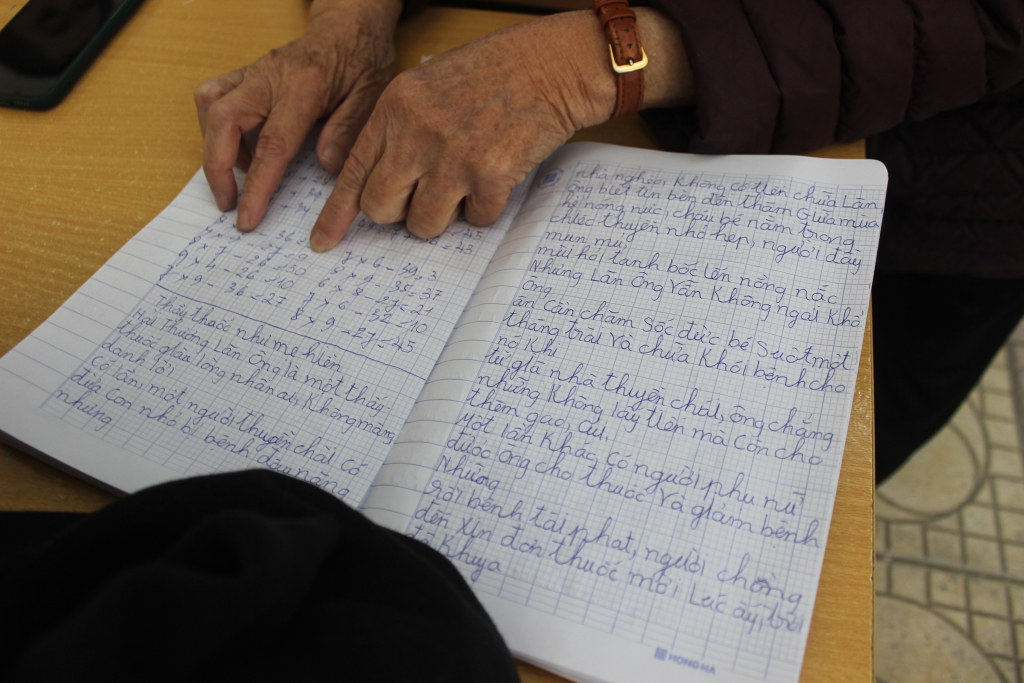 7 x 6 - 39 = 3
8 x 9 - 35 = 37
6 x 8 - 27 = 21
7 x 6 - 32 = 10
8 x 9 - 27 = 45
9 x 4 - 26 = 10
7 x 9 - 36 = 27
Thầy thuốc như mẹ hiền
Hải Thượng Lãn Ông là một thầy
thuốc giàu lòng nhân ái, không màng
danh lợi.
Có lần, một người thuyền chài có
đứa con nhỏ bị bệnh đậu nặng
nhưng
nhà nghèo, không có tiền chữa Lãn
ông biết tin bèn đến thăm Giữa mùa
hè nóng nực, cháu bé nằm trong
chiếc thuyền nhỏ hẹp, người đầy
mụn mủ,
mùi hôi tanh bốc lên nồng nặc.
Nhưng Lãn Ông vẫn không ngại khổ
ông
ân cần chăm sóc đứa bé suốt một
tháng trời và chữa khỏi bệnh cho
nó Khi
từ giã nhà thuyền chài, ông chẳng
những không lấy tiền mà còn cho
thêm gạo, củi.
Một lần khác, có người phụ nữ
được ông cho thuốc và giảm bệnh
Nhưng
rồi bệnh tái phát, người chồng
đến xin đơn thuốc mới Lúc ấy, trời
đã khuya
HONG HA